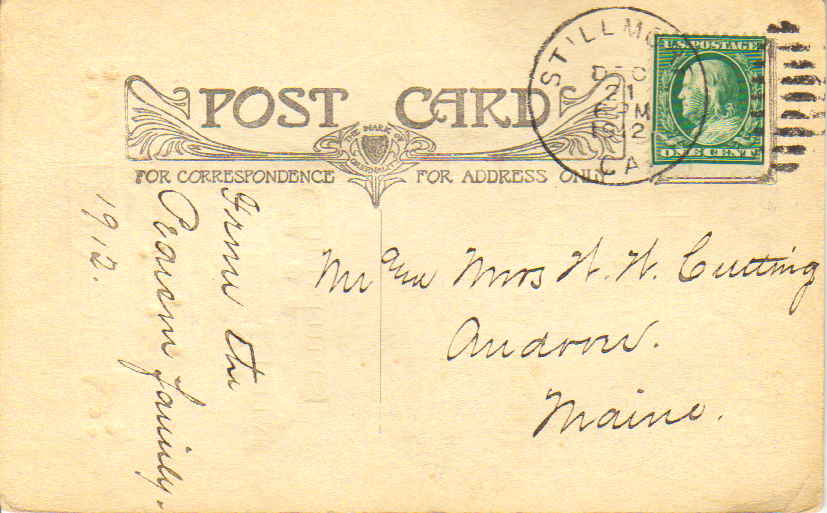 POST CARD
THE MARK OF
FOR CORRESPONDENCE
FOR ADDRESS ONLY
STILLMO
DEC
21
6 PM
1912
CA
U.S. POSTAGE
ONE CENT
From the
family.
1912.
Mr and Mrs W. W. Cutting
Andover.
Maine.